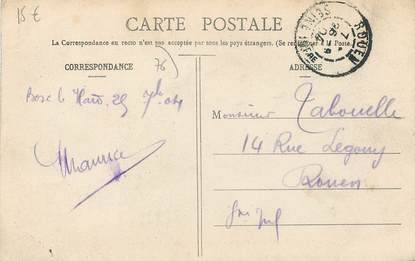 15 €
CARTE POSTALE
La Correspondance au recto n'est pas acceptée par tous les pays étrangers. (Se renseigner à la Poste.)
CORRESPONDANCE
76
ADRESSE
ROUEN
Bosc le Hard. 29 7bre 04
Maurice
Monsieur Tabouelle
14 Rue Legouy
Rouen